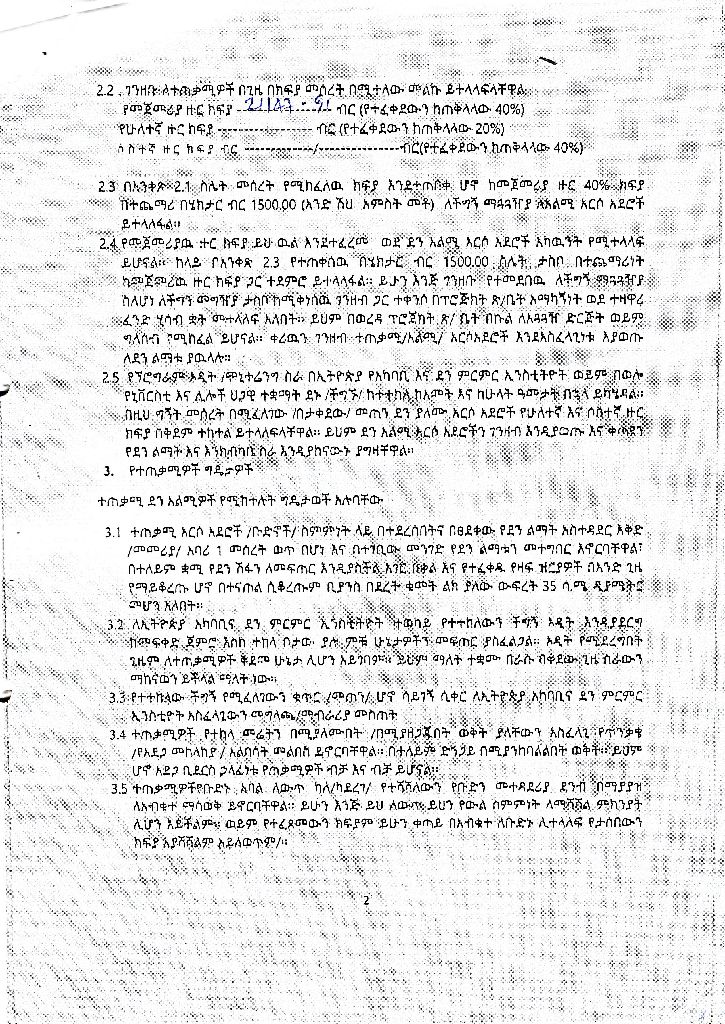 2.2 . ገንዘቡ ለተጠቃሚዎች በጊዜ በክፍያ መሰረት በሚተለው መልኩ ይተላለፍላቸዋል
የመጀመሪያ ዙር ክፍያ 21147 - 91 ብር (የተፈቀደውን ከጠቅላላው 40%)
የሁለተኛ ዙር ክፍያ ------------------ ብር (የተፈቀደውን ከጠቅላላው 20%)
ሶስተኛ ዙር ክፍያ ብር -------------/---------------ብር(የተፈቀደውን ከጠቅላላው 40%)
2.3 በአንቀጽ 2.1 ስሌት መሰረት የሚከፈለዉ ክፍያ እንደተጠበቀ ሆኖ ከመጀመሪያ ዙር 40% ክፍያ
በተጨማሪ በሄክታር ብር 1500.00 (አንድ ሽህ አምስት መቶ) ለችግኝ ማጓጓዣያ ለአልሚ አርሶ አደሮች
ይተላለፋል።
2.4 የመጀመሪያዉ ዙር ክፍያ ይህ ዉል እንደተፈረመ ወደ ደን አልሚ አርሶ አደሮች አካዉንት የሚተላለፍ
ይሆናል። ከላይ በአንቀጽ 2.3 የተጠቀሰዉ በሄክታር ብር 1500.00 ስሌት ታስቦ በተጨማሪነት
ከመጀመሪዉ ዙር ክፍያ ጋር ተደምሮ ይተላለፋል። ይሁን እንጅ ገንዘቡ የተመደበዉ ለችግኝ ማጓጓዣያ
ስለሆነ ለችግኝ መግዣያ ታስቦ ከሚቀነሰዉ ገንዘብ ጋር ተቀንሶ በፕሮጀክት ጽ/ቤት አማካኝነት ወደ ተዛዋሪ
ፈንድ ሂሳብ ቋት መተላለፍ አለበት። ይህም በወረዳ ፕሮጀክት ጽ/ ቤት በኩል ለአጓጓዥ ድርጅት ወይም
ግለሰብ የሚከፈል ይሆናል። ቀሪዉን ገንዘብ ተጠቃሚ/አልሚ/ አርሶአደሮች እንደአስፈላጊነቱ እያወጡ
ለደን ልማቱ ያዉላሉ።
2.5 የፕሮግራም ኦዲት /ሞኒተሬንግ ስራ በኢትዮጵያ የአካባቢ እና ደን ምርምር ኢንስቲትዮት ወይም በወሎ
የኒቨርስቲ እና ሌሎች ህጋዊ ተቋማት ደኑ /ችግኙ/ ከተተከለ ከአመት እና ከሁለት ዓመታት በኋላ ይካሄዳል።
በዚህ ግኝት መሰረት በሚፈለገው /በታቀደው/ መጠን ደን ያለሙ አርሶ አደሮች የሁለተኛ እና ሶስተኛ ዙር
ክፍያ በቅደም ተከተል ይተላለፍላቸዋል። ይህም ደን አልሚ አርሶ አደሮችን ገንዘብ እንዲያወጡ እና ቀጣይን
የደን ልማት እና እንክብካቤ ስራ እንዲያከናውኑ ያግዛቸዋል።
3. የተጠቃሚዎች ግዴታዎች
ተጠቃሚ ደን አልሚዎች የሚከተሉት ግዴታወች አሉባቸው
3.1 ተጠቃሚ አርሶ አደሮች /ቡድኖች/ ስምምነት ላይ በተደረሰበትና በፀደቀው የደን ልማት አስተዳደር እቅድ
/መመሪያ/ አባሪ 1 መሰረት ወጥ በሆነ እና በተገቢው መንገድ የደን ልማቱን መተግበር እኖርባቸዋል፣
በተለይም ቋሚ የደን ሽፋን ለመፍጠር እንዲያስችል አገር በቀል እና የተፈቀዱ የዛፍ ዝርያዎች በአንድ ጊዜ
የማይቆረጡ ሆኖ በተናጠል ሲቆረጡም ቢያንስ በደረት ቁመት ልክ ያለው ውፍረት 35 ሳ.ሜ ዲያሜትር
መሆን አለበት።
3.2 ለኢትዮጵያ አካባቢና ደን ምርምር ኢንስቲትዮት ተወካይ የተተከለውን ችግኝ ኦዲት እንዲያደርግ
ከመፍቀድ ጀምሮ እስከ ተከላ ቦታው ያሉ ምቹ ሁኔታዎችን መፍጠር ያስፈልጋል። ኦዲት የሚደረግበት
ጊዜም ለተጠቃሚዎች ቅድመ ሁኔታ ሊሆን አይገባም። ይህም ማለት ተቋሙ በራሱ ብቀደው ጊዜ ስራውን
ማከናወን ይችላል ማለት ነው።
3.3 የተተከለው ችግኝ የሚፈለገውን ቁጥር /መጠን/ ሆኖ ሳይገኝ ሲቀር ለኢትዮጵያ አካባቢና ደን ምርምር
ኢንስቲዮት አስፈላጊውን መግለጫ/ማብራሪያ መስጠት
3.4 ተጠቃሚዎች የተከላ መሬትን በሚያለሙበት /በሚያዘጋጁበት ወቅት ያለቸውን አስፈላጊ የጥንቃቄ
/የአደጋ መከላከያ / አልባሳት መልበስ ይኖርባቸዋል። በተለይም ድንጋይ በሚያንከባልልበት ወቅት። ይህም
ሆኖ አደጋ ቢደርስ ኃላፊነቱ የጠቃሚዎች ብቻ እና ብቻ ይሆናል።
3.5 ተጠቃሚዎች የቡድኑ አባል ለውጥ ካለ/ከደረገ/ የተሻሻለውን የቡድን መተዳደሪያ ደንብ በማያያዝ
ለአብቁተ ማሰወቅ ይኖርባቸዋል። ይሁን እንጅ ይህ ለውጡ ይህን የውል ስምምነት ለማሻሻል ምክንያት
ሊሆን አይችልም፣ ወይም የተፈጸመውን ክፍያም ይሁን ቀጣይ በአብቁተ ለቡድኑ ሊተላለፍ የታሰበውን
ክፍያ አያሻሽልም አይለወጥም/።
2